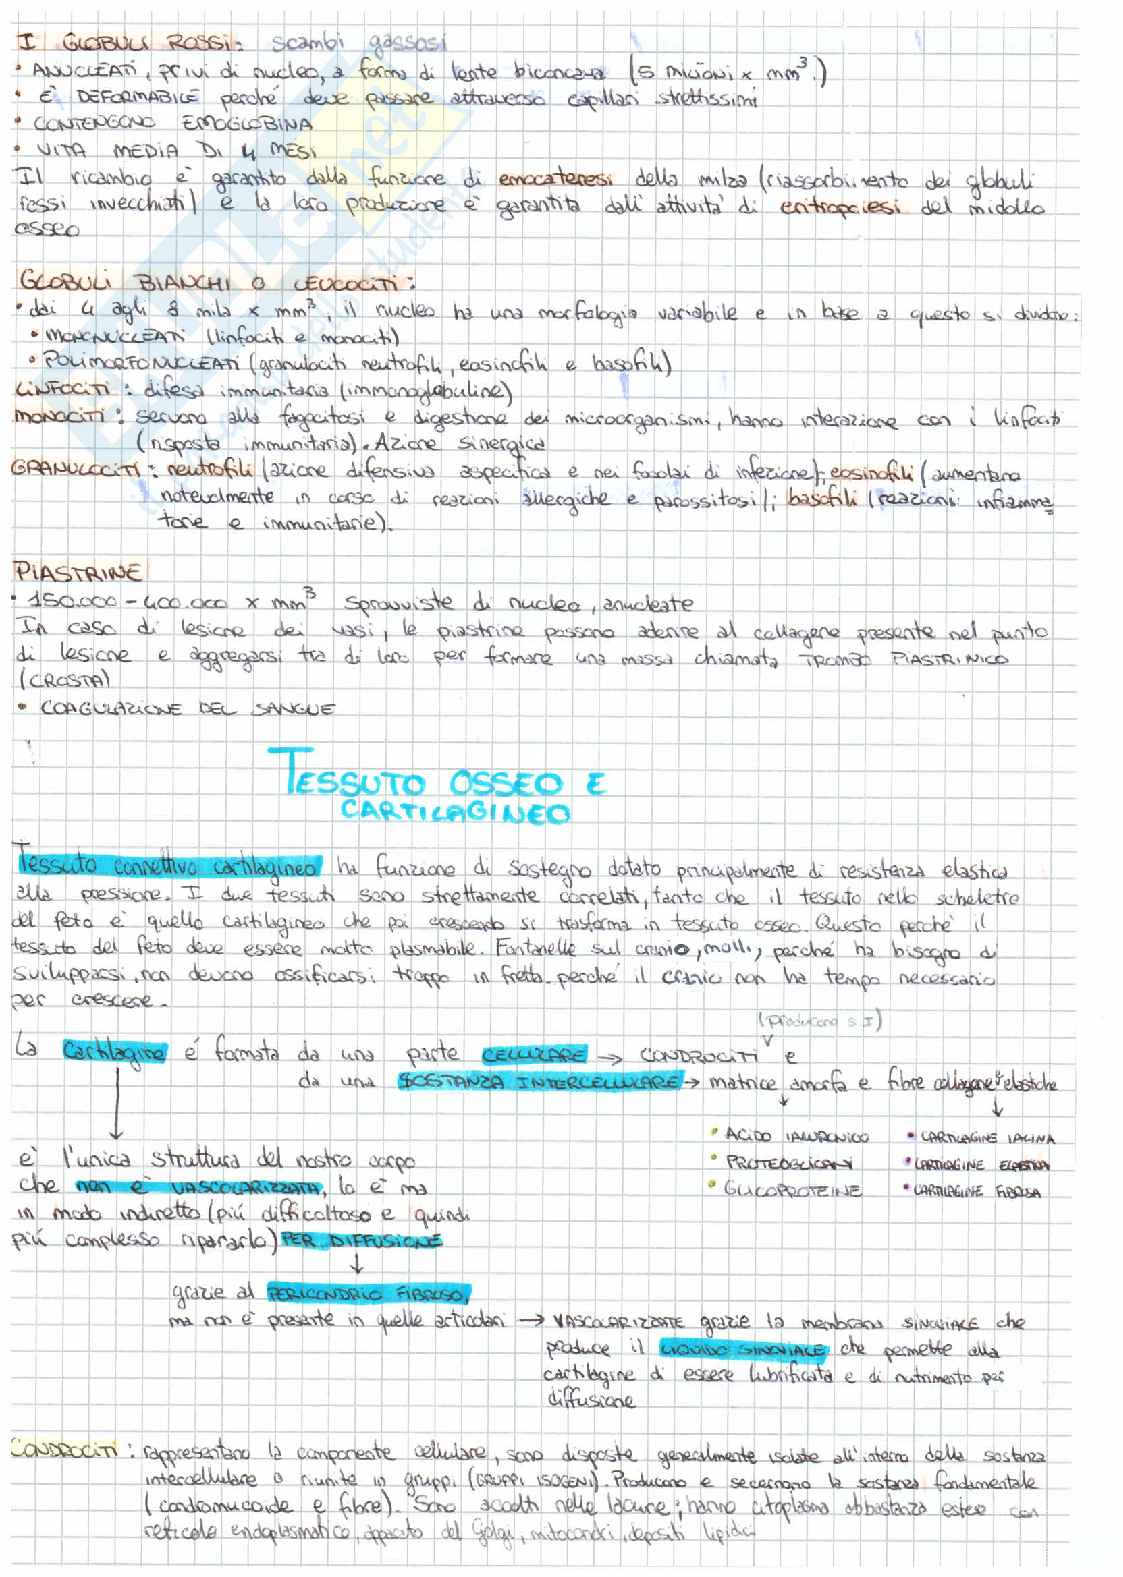 I GLOBULI ROSSI: scambi gassosi
• ANUCLEATI, privi di nucleo, a forma di lente biconcava (5 milioni x mm³.)
• E' DEFORMABILE perché deve passare attraverso capillari strettissimi
• CONTENGONO EMOGLOBINA
• VITA MEDIA DI 4 MESI
Il ricambio è garantito dalla funzione di emocateresi della milza (riassorbimento dei globuli
rossi invecchiati) e la loro produzione è garantita dall'attività di eritropoiesi del midollo
osseo
GLOBULI BIANCHI O LEUCOCITI:
• dai 4 agli 8 mila x mm³, il nucleo ha una morfologia variabile e in base a questo si dividono:
• MONONUCLEATI (linfociti e monociti)
• POLIMORFONUCLEATI (granulociti neutrofili, eosinofili e basofili)
LINFOCITI: difesa immunitaria (immonoglobuline)
MONOCITI: servono alla fagocitosi e digestione dei microorganismi, hanno interazione con i linfociti
(risposta immunitaria). Azione sinergica
GRANULOCITI: neutrofili (azione difensiva aspecifica e nei focolai di infezione); eosinofili (aumentano
notevolmente in corso di reazioni allergiche e parassitosi); basofili (reazioni infiamma
torie e immunitarie).
PIASTRINE
• 150.000 - 400.000 x mm³ sprovviste di nucleo, anucleate
In caso di lesione dei vasi, le piastrine possono aderire al collagene presente nel punto
di lesione e aggregarsi tra di loro per formare una massa chiamata TROMBO PIASTRINICO
(CROSTA)
• COAGULAZIONE DEL SANGUE
TESSUTO OSSEO E
CARTILAGINEO
Tessuto connettivo cartilagineo ha funzione di sostegno dotato principalmente di resistenza elastica
alla pressione. I due tessuti sono strettamente correlati, tanto che il tessuto nello scheletro
del feto è quello cartilagineo che poi crescendo si trasforma in tessuto osseo. Questo perché il
tessuto del feto deve essere molto plasmabile. Fontanelle sul cranio, molli, perché ha bisogno di
svilupparsi, non devono ossificarsi troppo in fretta perché il cranio non ha tempo necessario
per crescere.
(producono s.I)
La cartilagine é formata da una parte CELLULARE → CONDROCITI e
da una SOSTANZA INTERCELLULARE → matrice amorfa e fibre collagene e elastiche
• ACIDO IALURONICO • CARTILAGINE IALINA
è l'unica struttura del nostro corpo • PROTEOGLICANI • CARTILAGINE ELASTICA
che non è VASCOLARIZZATA, lo è ma • GLICOPROTEINE • CARTILAGINE FIBROSA
in modo indiretto (piú difficoltoso e quindi
piú complesso ripararlo) PER DIFFUSIONE
grazie al PERICONDRIO FIBROSO,
ma non è presente in quelle articolari → VASCOLARIZZATE grazie la membrana SINOVIALE che
produce il LIQUIDO SINOVIALE che permette alla
cartilagine di essere lubrificata e di nutrimento per
diffusione
CONDROCITI: rappresentano la componente cellulare, sono disposte generalmente isolate all'interno della sostanza
intercellulare o riunite in gruppi (GRUPPI ISOGENI). Producono e secernono la sostanza fondamentale
(condromucoide e fibre). Sono accolti nelle lacune; hanno citoplasma abbastanza esteso con
reticolo endoplasmatico, apparato del Golgi, mitocondri, depositi lipidici